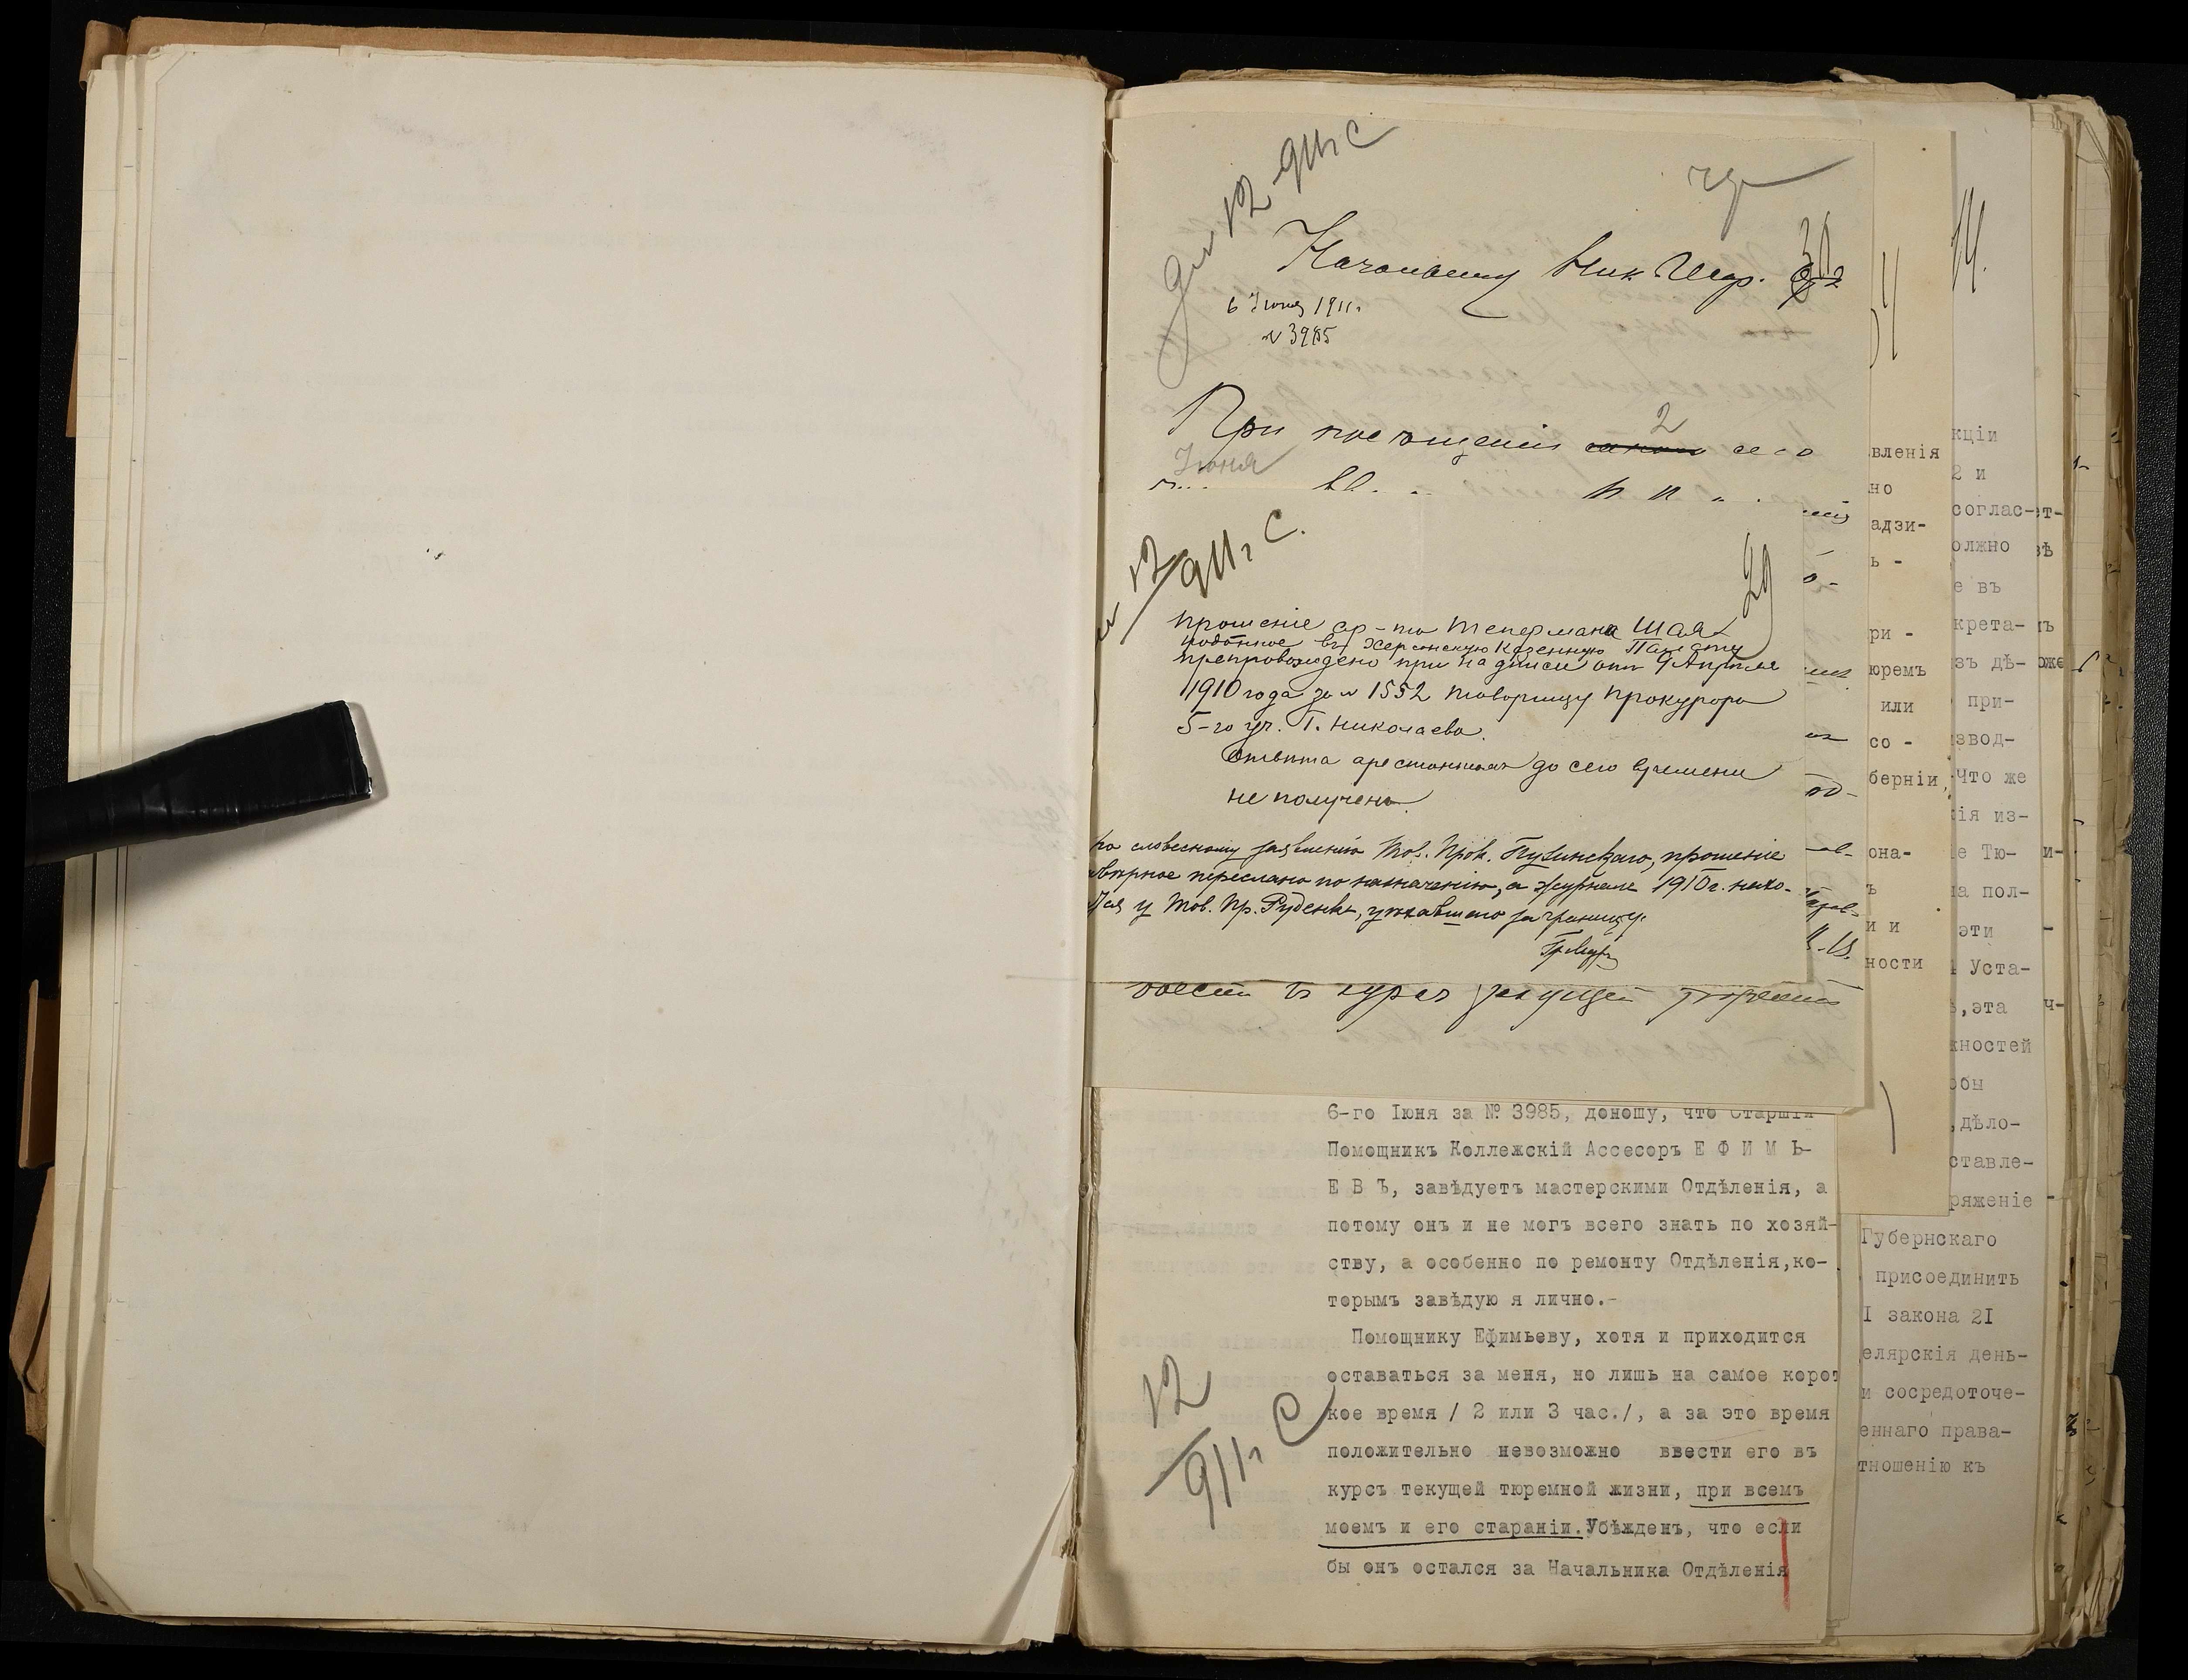 12 911 г С
30
Начальнику Ник. Исп.
6 Іюня 1911 г.
№ 3985
При посѣщеніи 2 сего
Іюня
12/911 г С.
29
Прошеніе ар-та Тепермана Шая
поданное въ Херсонскую Казенную Палату
препровождено при надписи отъ 9 Апрѣля
1910 года за № 1552 Товарищу Прокурора
5-го уч. Г. Николаева.
Отвѣта арестантомъ до сего времени
не получено.
По словесному заявленію Тов. Прок. Пузинскаго, прошеніе
переслано по назначенію, а журналъ 1910 г. нахо-
у Тов. Пр. Руденко, уѣхавшаго за границу.
ввести въ курсъ текущей тюремной
6-го Іюня за № 3985, доношу, что Старшій
Помощникъ Коллежскій Ассесоръ Е Ф И М Ь-
Е В Ъ, завѣдуетъ мастерскими Отдѣленія, а
потому онъ и не могъ всего знать по хозяй-
ству, а особенно по ремонту Отдѣленія,ко-
торымъ завѣдую я лично.-
Помощнику Ефимьеву, хотя и приходится
оставаться за меня, но лишь на самое корот
кое время / 2 или 3 час./, а за это время
положительно невозможно ввести его въ
курсъ текущей тюремной жизни, при всемъ
моемъ и его стараніи. Убѣжденъ, что если
бы онъ остался за Начальника Отдѣленія
12/911 г С
вленія
но
адзи-
ь -
ри -
юремъ
или
со -
берніи,
она-
ъ
и и
ности
14.
кціи
2 и
соглас-
олжно
е въ
крета-
зъ дѣ-
при-
извод-
Что же
ія из-
е Тю-
на пол-
эти
Уста-
,эта
жностей
обы
,дѣло-
ставле-
ряженіе
Губернскаго
присоединить
I закона 21
елярскія день-
и сосредоточе-
еннаго права-
тношенію къ